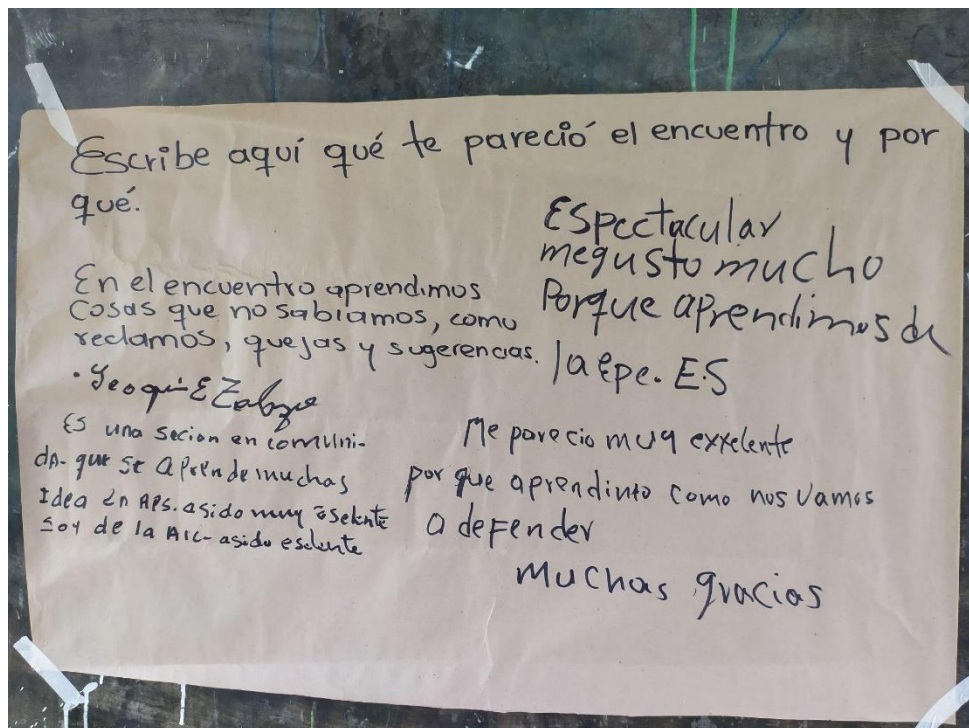 Escribe aquí qué te pareció el encuentro y por
qué.
En el encuentro aprendimos
Cosas que no sabiamos, como
reclamos, quejas y sugerencias.
Es una secion en comuni-
da- que se aprende muchas
Idea en APS. asido muy eselente
Soy de la AIC- asido eselente
Espectacular
megusto mucho
Porque aprendimos de
la Epe. E.S
Me parecio muy exxelente
por que aprendimto como nos vamos
a defender
muchas gracias